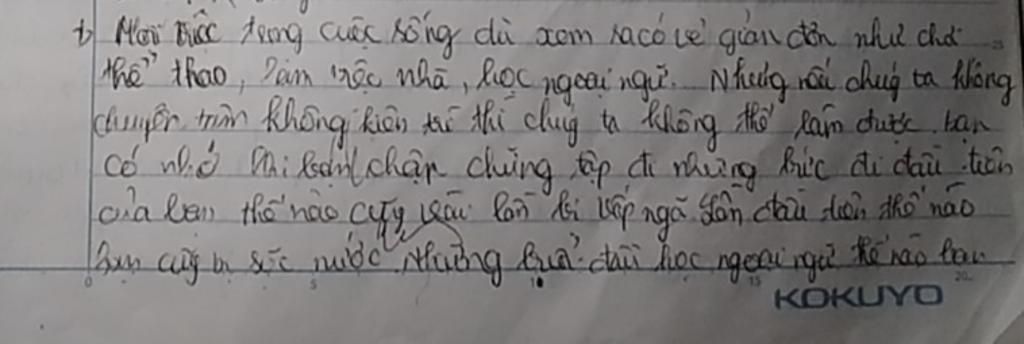 b) Mọi việc trong cuộc sống dù xem ra có vẻ giản đơn như chơi
thể thao, làm việc nhà, học ngoại ngữ. Nhưng nếu chúg ta không
chuyên tâm không kiên trì thì chúg ta không thể làm được. bạn
có nhớ khi bạn chập chững tập đi những bước đi đầu tiên
của bạn thế nào cũg vài lần bị vấp ngã lần đầu tiên thế nào
bạn cũg bị sặc nước. Những buổi đầu học ngoại ngữ thế nào bạn
0 5 10 15 20
KOKUYO